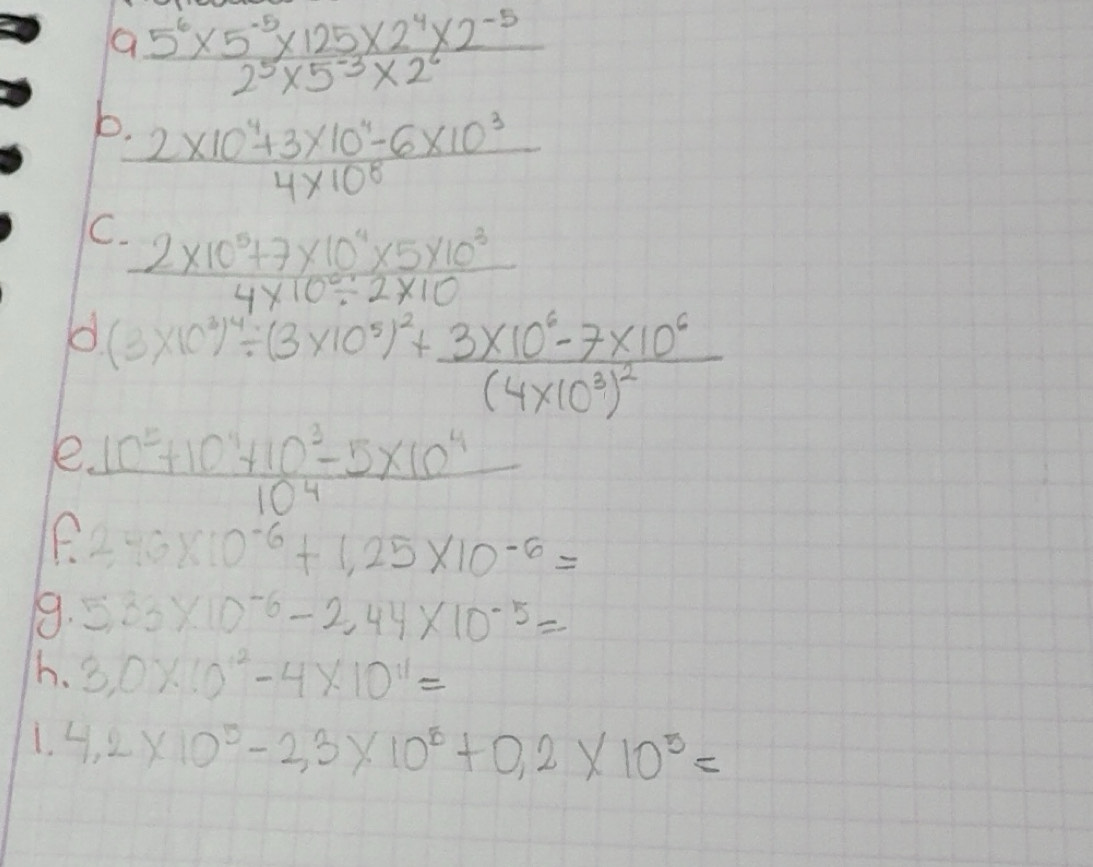 a 5⁶×5⁻⁵×125×2⁴×2⁻⁵
2⁵×5⁻³×2⁶
b. 2×10⁴+3×10⁴-6×10³
4×10⁶
c. 2×10⁵+7×10⁴×5×10³
4×10⁶÷2×10
d. (3×10³)⁴÷(3×10⁵)²+ 3×10⁶-7×10⁶
(4×10³)²
e. 10⁵+10⁴+10³-5×10⁴
10⁴
f. ×10⁻⁶+1,25×10⁻⁶=
g. 5,33×10⁻⁶-2,44×10⁻⁵=
h. 3,0×10¹²-4×10¹¹=
i. 4,2×10⁵-2,3×10⁵+0,2×10⁵=